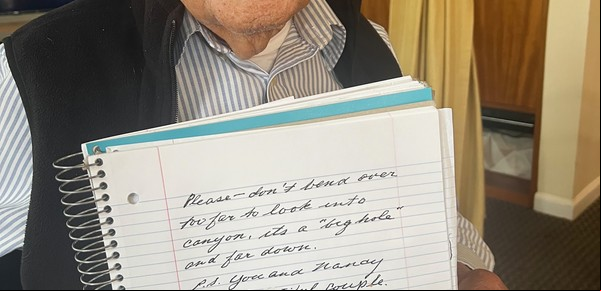 Please - don't bend over
too far to look into
canyon, its a "big hole"
and far down.
P.S. You and Nancy
couple.